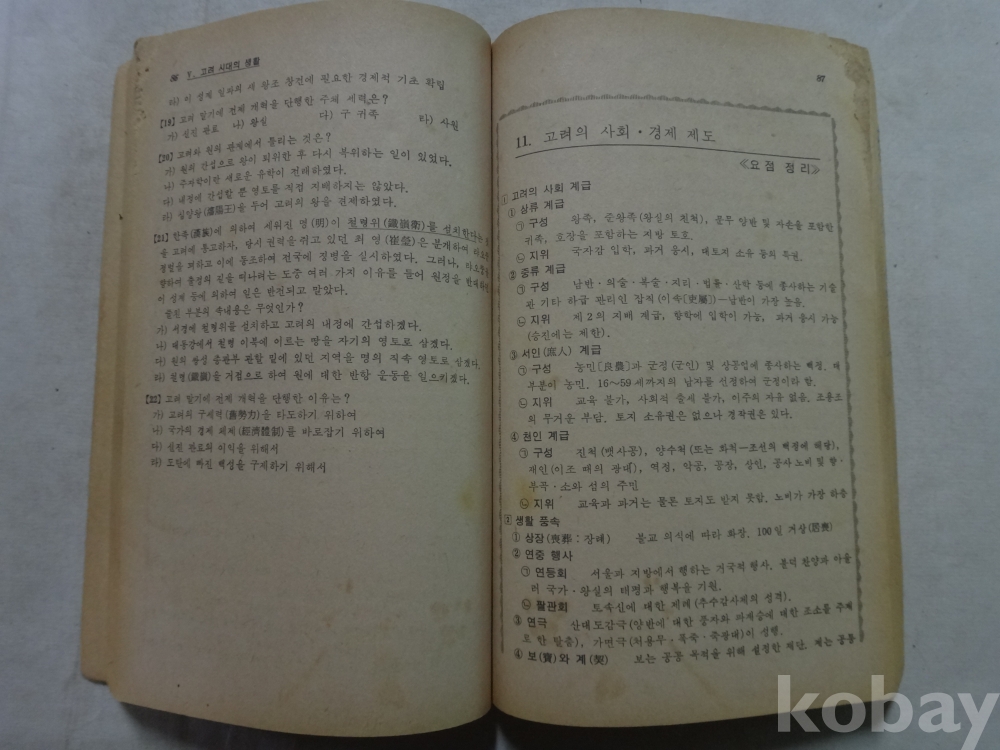 86 Ⅴ. 고려 시대의 생활
다) 이 성계 일파의 새 왕조 창건에 필요한 경제적 기초 확립
【18】 고려 말기에 전제 개혁을 단행한 주체 세력은?
가) 실진 관료 나) 왕실 다) 구 귀족 라) 사원
【20】 고려와 원의 관계에서 틀리는 것은?
가) 원의 간섭으로 왕이 퇴위한 후 다시 복위하는 일이 있었다.
나) 주자학이란 새로운 유학이 전래하였다.
다) 내정에 간섭할 뿐 영토를 직접 지배하지는 않았다.
라) 심양왕(瀋陽王)을 두어 고려의 왕을 견제하였다.
【21】 한족(漢族)에 의하여 세워진 명(明)이 철령위(鐵嶺衛)를 설치한다는
을 고려에 통고하자, 당시 권력을 쥐고 있던 최 영(崔瑩)은 분개하여
정벌을 꾀하고 이에 동조하여 전국에 징병을 실시하였다. 그러나,
향하여 출정의 길을 떠나려는 도중 여러 가지 이유를 들어 원정을 반대하던
이 성계 등에 의하여 일은 반전되고 말았다.
줄친 부분의 속내용은 무엇인가?
가) 서경에 철령위를 설치하고 고려의 내정에 간섭하겠다.
나) 대동강에서 철령 이북에 이르는 땅을 자기의 영토로 삼겠다.
다) 원의 쌍성 총관부 관할 밑에 있던 지역을 명의 직속 영토로 삼겠다.
라) 철령(鐵嶺)을 거점으로 하여 원에 대한 반항 운동을 일으키겠다.
【22】 고려 말기에 전제 개혁을 단행한 이유는?
가) 고려의 구세력(舊勢力)을 타도하기 위하여
나) 국가의 경제 체제(經濟體制)를 바로잡기 위하여
다) 실진 관료의 이익을 위해서
라) 도탄에 빠진 백성을 구제하기 위해서
87
11. 고려의 사회·경제 제도
《요점 정리》
1 고려의 사회 계급
① 상류 계급
㉠ 구성 왕족, 준왕족(왕실의 친척), 문무 양반 및 자손을 포함한
귀족, 호장을 포함하는 지방 토호.
㉡ 지위 국자감 입학, 과거 응시, 대토지 소유 등의 특권.
② 중류 계급
㉠ 구성 남반·의술·복술·지리·법률·산학 등에 종사하는 기술
관 기타 하급 관리인 잡적(이속[吏屬])—남반이 가장 높음.
㉡ 지위 제 2의 지배 계급, 향학에 입학이 가능, 과거 응시 가능
(승진에는 제한).
③ 서인(庶人) 계급
㉠ 구성 농민[良農]과 군정(군인) 및 상공업에 종사하는 백정. 대
부분이 농민. 16~59세까지의 남자를 선정하여 군정이라 함.
㉡ 지위 교육 불가, 사회적 출세 불가, 이주의 자유 없음. 조용조
의 무거운 부담. 토지 소유권은 없으나 경작권은 있다.
④ 천인 계급
㉠ 구성 진척(뱃사공), 양수척(또는 화척—조선의 백정에 해당),
재인(이조 때의 광대), 역정, 악공, 공장, 상인, 공사 노비 및 향·
부곡·소와 섬의 주민
㉡ 지위 교육과 과거는 물론 토지도 받지 못함. 노비가 가장 하층
2 생활 풍속
① 상장(喪葬 : 장례) 불교 의식에 따라 화장. 100일 거상(居喪)
② 연중 행사
㉠ 연등회 서울과 지방에서 행하는 거국적 행사. 불덕 찬양과 아울
러 국가·왕실의 태평과 행복을 기원.
㉡ 팔관회 토속신에 대한 제례(추수감사제의 성격).
③ 연극 산대도감극(양반에 대한 풍자와 파계승에 대한 조소를 주제
로 한 탈춤), 가면극(처용무·목죽·죽광대)이 성행.
④ 보(寶)와 계(契) 보는 공공 목적을 위해 설정한 재단. 계는 공동
kobay